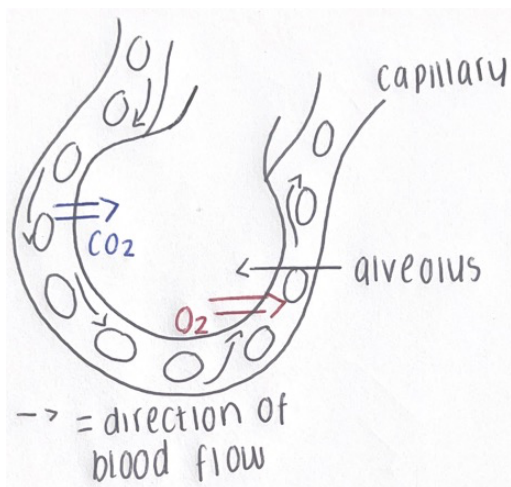 capillary
CO2
alveolus
O2
--> = direction of
blood flow